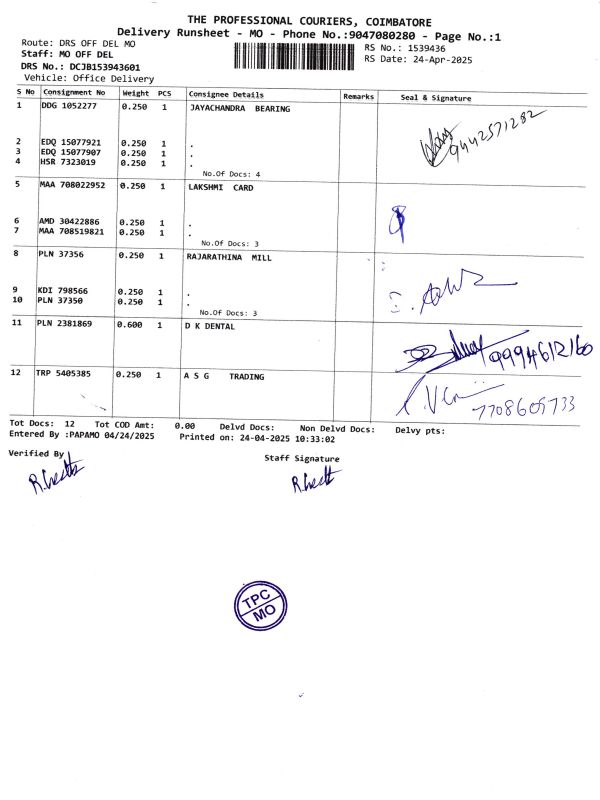 THE PROFESSIONAL COURIERS, COIMBATORE
Delivery Runsheet - MO - Phone No.:9047080280 - Page No.:1
Route: DRS OFF DEL MO RS No.: 1539436
Staff: MO OFF DEL RS Date: 24-Apr-2025
DRS No.: DCJB153943601
Vehicle: Office Delivery
S No Consignment No Weight PCS Consignee Details Remarks Seal & Signature
1 DDG 1052277 0.250 1 JAYACHANDRA BEARING
9442571282
2 EDQ 15077921 0.250 1 .
3 EDQ 15077907 0.250 1 .
4 HSR 7323019 0.250 1 .
No.Of Docs: 4
5 MAA 708022952 0.250 1 LAKSHMI CARD
6 AMD 30422886 0.250 1 .
7 MAA 708519821 0.250 1 .
No.Of Docs: 3
8 PLN 37356 0.250 1 RAJARATHINA MILL
9 KDI 798566 0.250 1 .
10 PLN 37350 0.250 1 .
No.Of Docs: 3
11 PLN 2381869 0.600 1 D K DENTAL
9994612160
12 TRP 5405385 0.250 1 A S G TRADING
7708609733
Tot Docs: 12 Tot COD Amt: 0.00 Delvd Docs: Non Delvd Docs: Delvy pts:
Entered By :PAPAMO 04/24/2025 Printed on: 24-04-2025 10:33:02
Verified By Staff Signature
TPC
MO